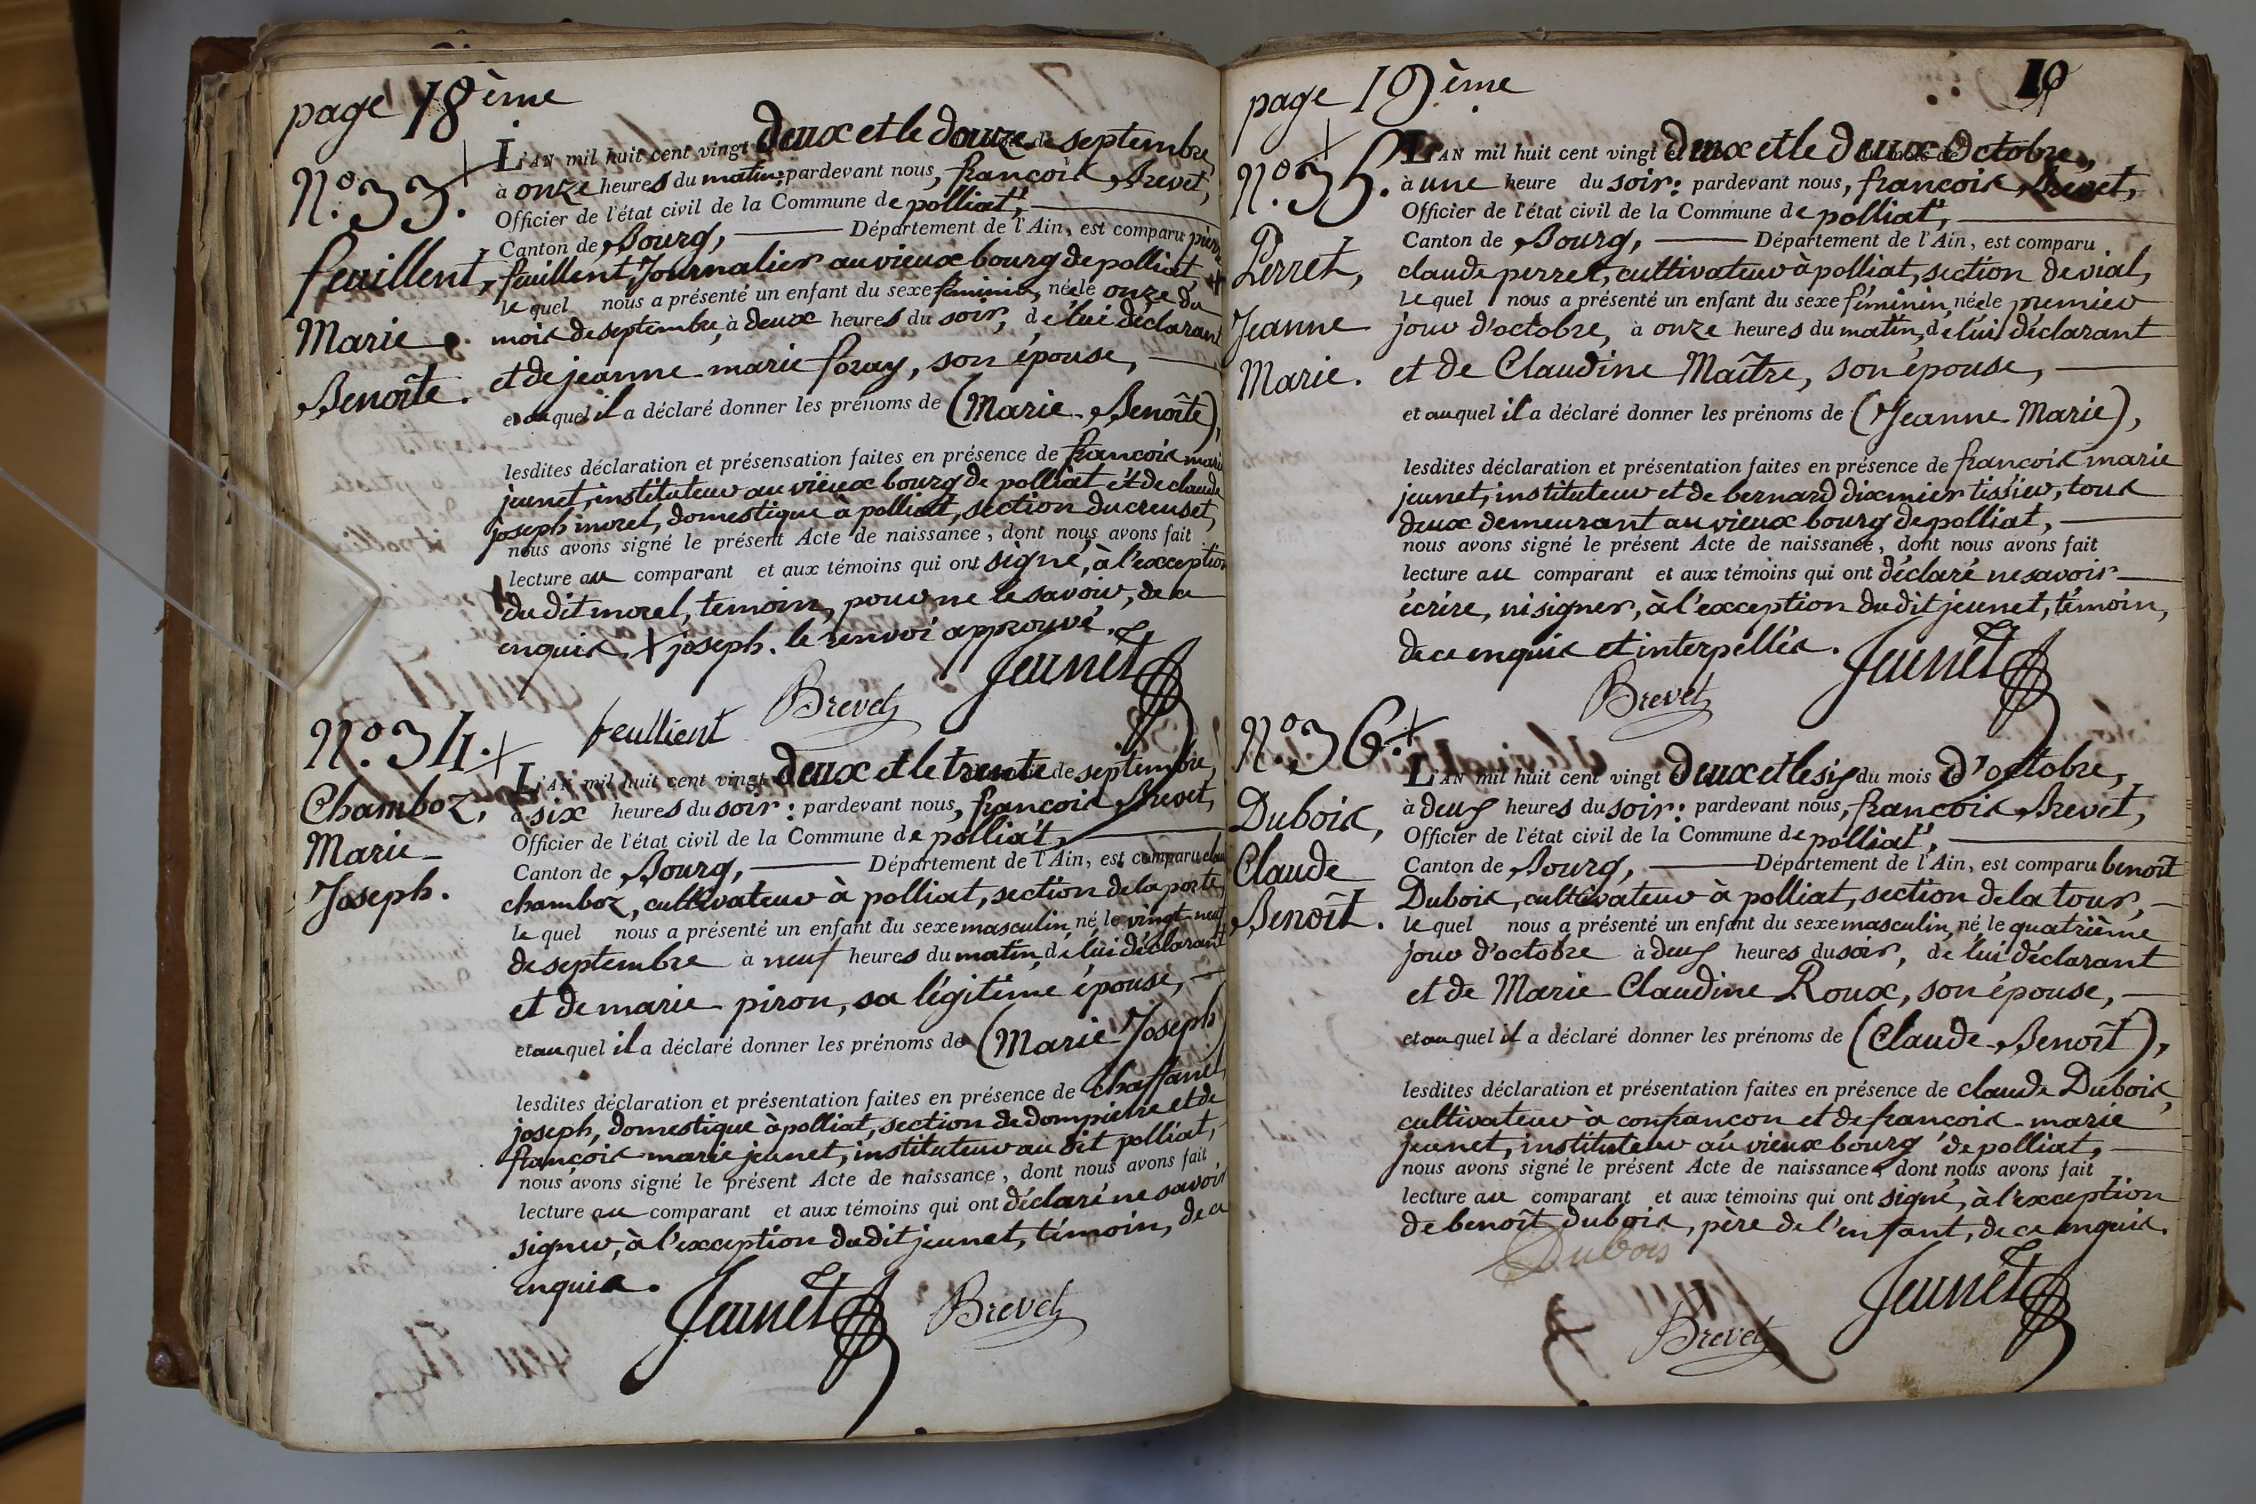 page 18ème
N.º 33.
feuillent,
Marie
Benoîte.
L'AN mil huit cent vingt deux et le douze de septembre,
à onze heures du matin, pardevant nous, francois Brevet,
Officier de l'état civil de la Commune de polliat,
Canton de Bourg, Département de l'Ain, est comparu pierre
feuillent, Journalier au vieux bourg de polliat,
le quel nous a présenté un enfant du sexe feminin, né le onze du
mois de septembre, à deux heures du soir, de lui déclarant
et de jeanne marie foray, son épouse,
et auquel il a déclaré donner les prénoms de (Marie-Benoîte),
lesdites déclaration et présensation faites en présence de francois marie
jeunet, instituteur au vieux bourg de polliat et de claude
joseph morel, domestique à polliat, section du creuset,
nous avons signé le présent Acte de naissance, dont nous avons fait
lecture au comparant et aux témoins qui ont signé, à l'exception
du dit morel, temoin, pour ne le savoir, de ce
enquis. X joseph. le renvoi approuvé.
Jeunet
Brevet
feullient
N.º 34.
Chamboz,
Marie-
Joseph.
L'AN mil huit cent vingt deux et le trente de septembre,
à six heures du soir: pardevant nous, francois Brevet,
Officier de l'état civil de la Commune de polliat,
Canton de Bourg, Département de l'Ain, est comparu
chamboz, cultivateur à polliat, section de la porte,
le quel nous a présenté un enfant du sexe masculin, né le vingt-neuf
de septembre à neuf heures du matin, de lui déclarant
et de marie piron, sa légitime épouse,
et auquel il a déclaré donner les prénoms de (Marie-Joseph)
lesdites déclaration et présentation faites en présence de chaffanel
joseph, domestique à polliat, section de dompierre et de
françois marie jeunet, instituteur au dit polliat,
nous avons signé le présent Acte de naissance, dont nous avons fait
lecture au comparant et aux témoins qui ont déclaré ne savoir
signer, à l'exception du dit jeunet, témoin, de ce
enquis.
Jeunet Brevet
page 19ème
19
N.º 35.
Perret,
Jeanne
Marie.
L'AN mil huit cent vingt deux et le deux du mois de Octobre,
à une heure du soir: pardevant nous, francois Brevet,
Officier de l'état civil de la Commune de polliat,
Canton de Bourg, Département de l'Ain, est comparu
claude perret, cultivateur à polliat, section de vial,
le quel nous a présenté un enfant du sexe féminin, née le premier
jour d'octobre, à onze heures du matin, de lui déclarant
et de Claudine Maître, son épouse,
et auquel il a déclaré donner les prénoms de (Jeanne Marie),
lesdites déclaration et présentation faites en présence de francois marie
jeunet, instituteur et de bernard dixmier tissier, tous
deux demeurant au vieux bourg de polliat,
nous avons signé le présent Acte de naissance, dont nous avons fait
lecture au comparant et aux témoins qui ont déclaré ne savoir
écrire, ni signer, à l'exception du dit jeunet, témoin,
de ce enquis et interpellés.
Jeunet
Brevet
N.º 36.
Dubois,
Claude
Benoît.
L'AN mil huit cent vingt deux et le six du mois d'octobre,
à deux heures du soir: pardevant nous, francois Brevet,
Officier de l'état civil de la Commune de polliat,
Canton de Bourg, Département de l'Ain, est comparu benoît
Dubois, cultivateur à polliat, section de la tour,
le quel nous a présenté un enfant du sexe masculin, né le quatrième
jour d'octobre à deux heures du soir, de lui déclarant
et de Marie-Claudine Roux, son épouse,
et auquel il a déclaré donner les prénoms de (Claude-Benoît),
lesdites déclaration et présentation faites en présence de claude Dubois,
cultivateur à confrancon et de francois marie
jeunet, instituteur au vieux bourg de polliat,
nous avons signé le présent Acte de naissance, dont nous avons fait
lecture au comparant et aux témoins qui ont signé, à l'exception
de benoît dubois, père de l'enfant, de ce enquis.
Dubois
Jeunet
Brevet